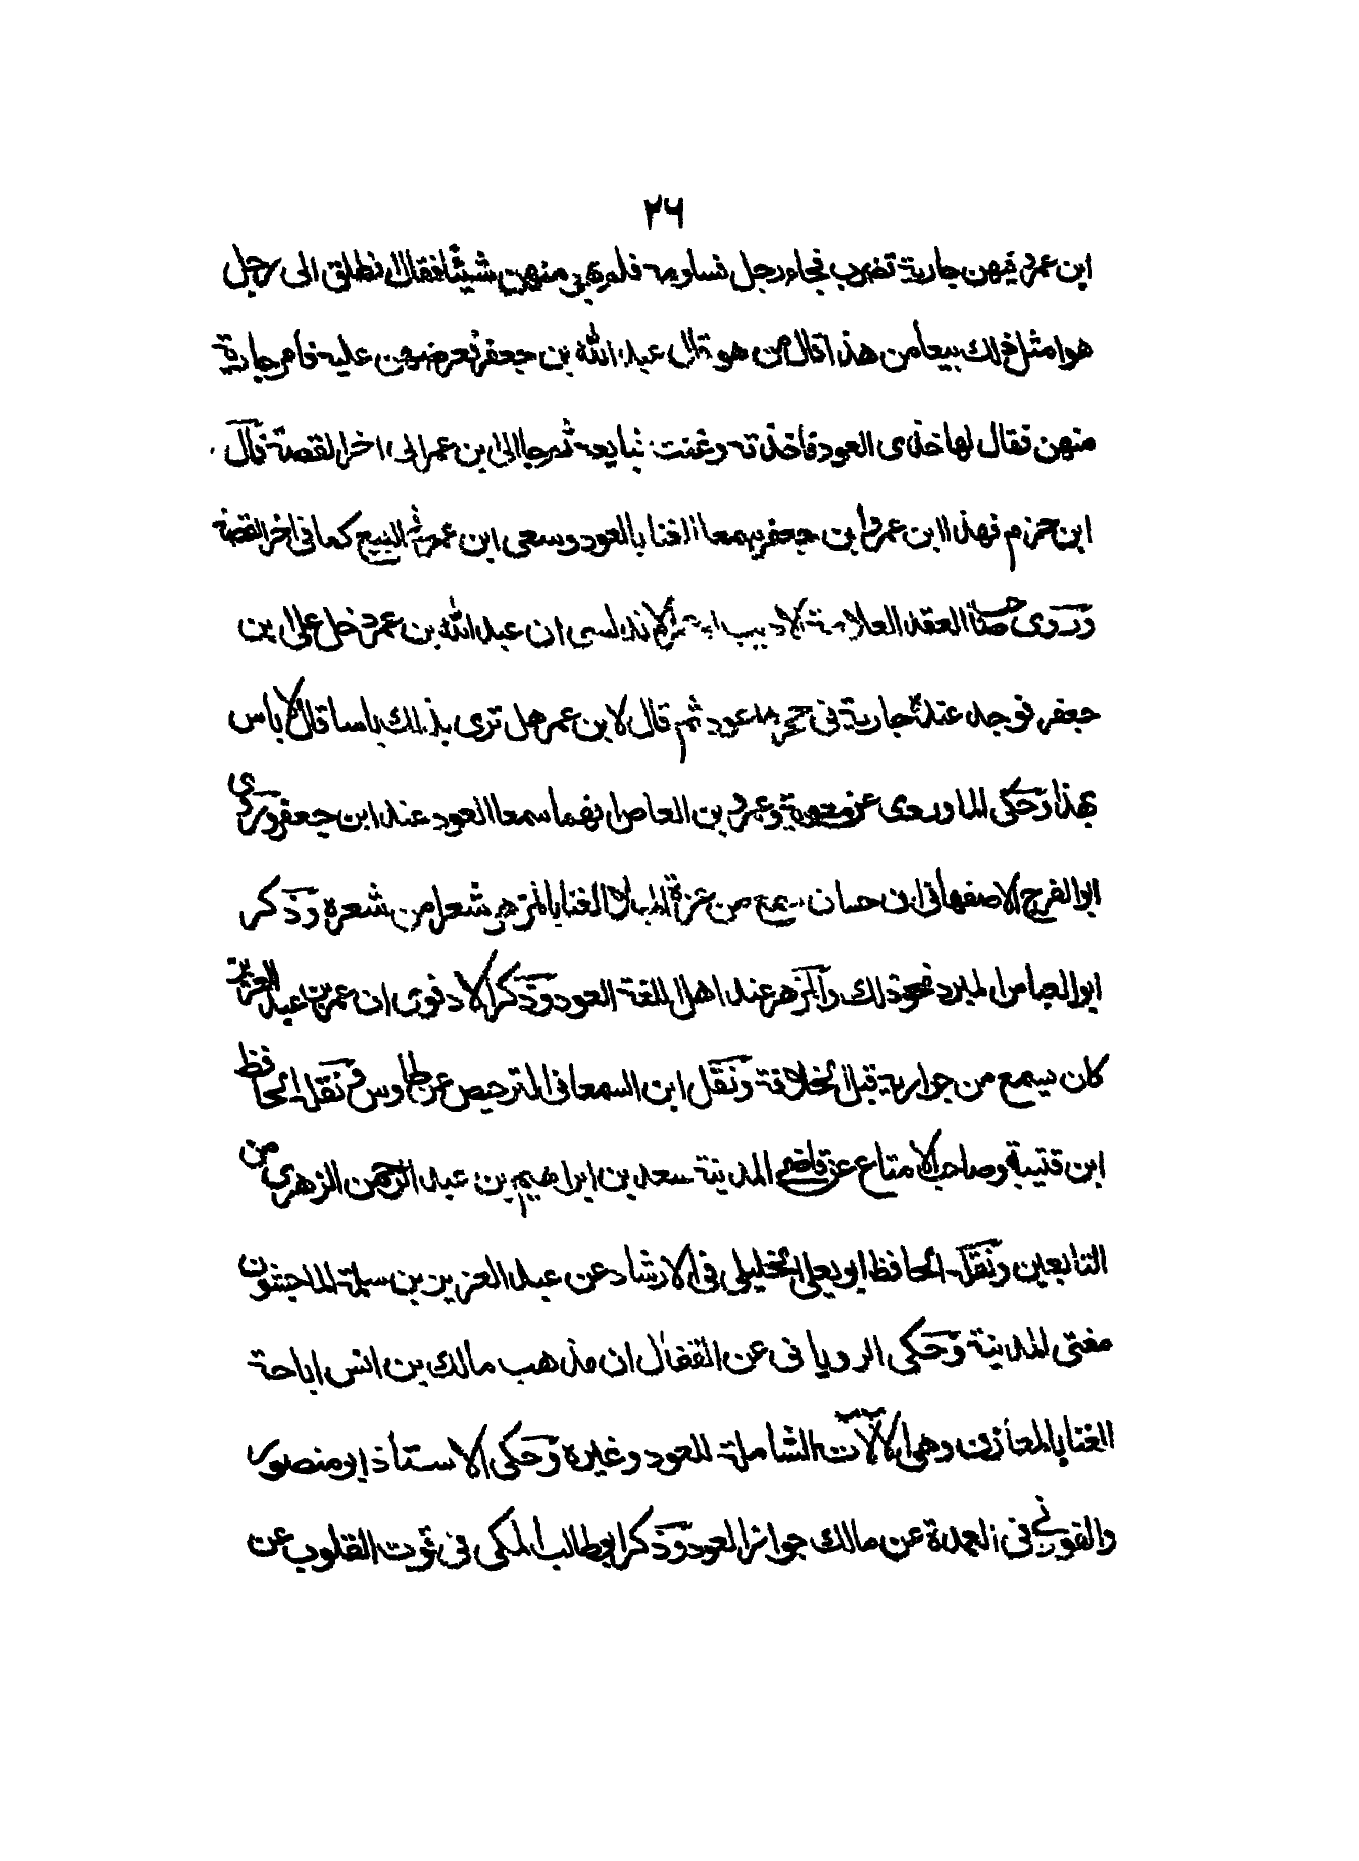 ٢٦
ابن عمر و فيهن جارية تضرب فجاء رجل فساومه فلم يهو منهن شيئا فقال انطلق الى رجل
هو امثل لك بيعا من هذا قال من هو قال عبد الله بن جعفر فعرضهن عليه فامر جارية
منهن فقال لها خذى العود فاخذته وغنت فبايعه ثم جا الى ابن عمر الى اخر القصة قال
ابن حزم فهذا ابن عمر وابن جعفر سمعا الغنا بالعود وسعى ابن عمر فى البيع كما فى اخر القصة
وروى صاحب العقد العلامة الاديب ابو عمر الاندلسى ان عبد الله بن عمر دخل على ابن
جعفر فوجد عنده جارية فى حجرها عود ثم قال لابن عمر هل ترى بذلك باسا قال لا باس
بهذا وحكى الماوردى عن معوية وعمرو بن العاص انهما سمعا العود عند ابن جعفر وروى
ابو الفرج الاصفهانى ان حسان سمع من عزة الميلا الغنا بالمزهر بشعر من شعره وذكر
ابو العباس المبرد نحو ذلك والمزهر عند اهل اللغة العود وذكر الادفوى ان عمر بن عبد العزيز
كان يسمع من جواريه قبل الخلافة ونقل ابن السمعانى الترخيص عن طاوس ونقله الحافظ
ابن قتيبة وصاحب الامتاع عن قاضى المدينة سعد بن ابراهيم بن عبد الرحمن الزهرى من
التابعين ونقله الحافظ ابو يعلى الخليلى فى الارشاد عن عبد العزيز بن سلمة الماجشون
مفتى المدينة وحكى الرويانى عن القفال ان مذهب مالك بن انس اباحة
الغنا بالمعازف وهى الالات الشاملة للعود وغيره وحكى الاستاذ ابو منصور
والفورانى فى العمدة عن مالك جواز العود وذكر ابو طالب المكى فى قوت القلوب عن